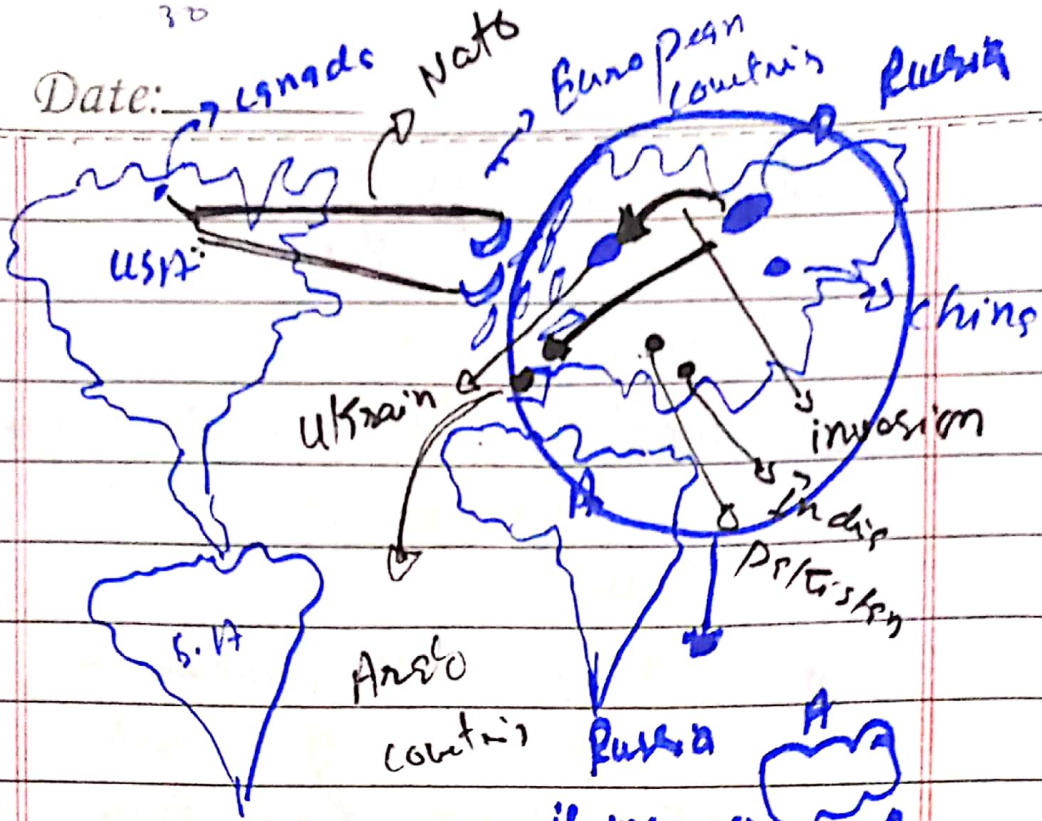 30
Date:
canada
Nato
European
countris
Russia
USA
china
Ukrain
invosion
A
India
Pakistan
S.A
Arab
countris
Russia
A